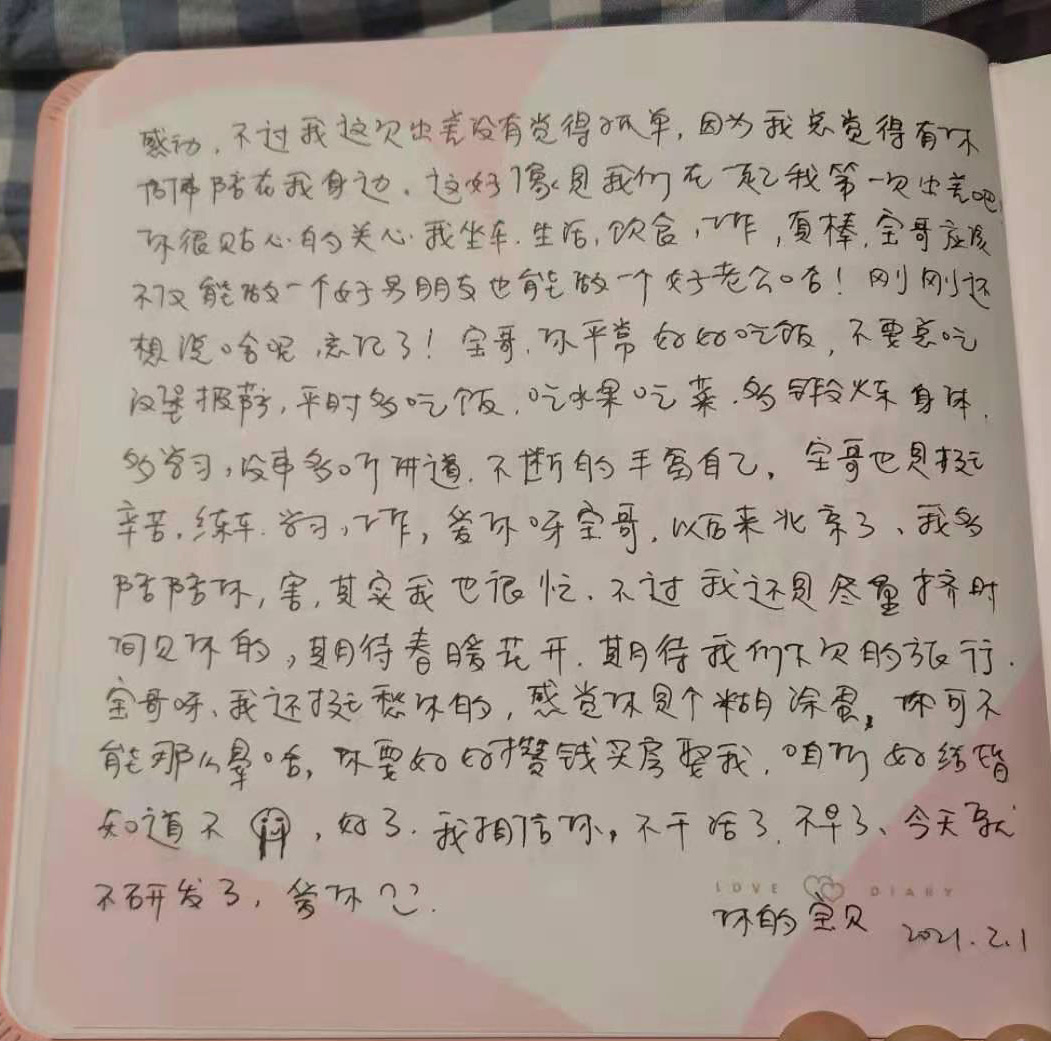 感动，不过我这次出差没有觉得孤单，因为我总觉得有你
仿佛陪在我身边，这好像是我们在一起我第一次出差吧，
你很贴心的关心我坐车，生活，饮食，工作，真棒，宝哥应该
不仅能做一个好男朋友也能做一个好老公哈！刚刚还
想说啥呢，忘记了！宝哥，你平常好好吃饭，不要总吃
汉堡披萨，平时多吃饭，吃水果吃菜，多锻炼身体，
多学习，没事多听讲道，不断的丰富自己，宝哥也是挺
辛苦，练车，学习，工作，爱你呀宝哥，以后来北京了、我多
陪陪你，害，其实我也很忙，不过我还是尽量挤时
间见你的，期待春暖花开，期待我们下次的旅行．
宝哥呀、我还挺愁你的，感觉你是个糊涂蛋，你可不
能那么晕哈，你要好好攒钱买房娶我，咱们好结婚
知道不，好了．我相信你，不干活了．不早了、今天就
不研发了，爱你
LOVE DIARY
你的宝贝 2021.2.1